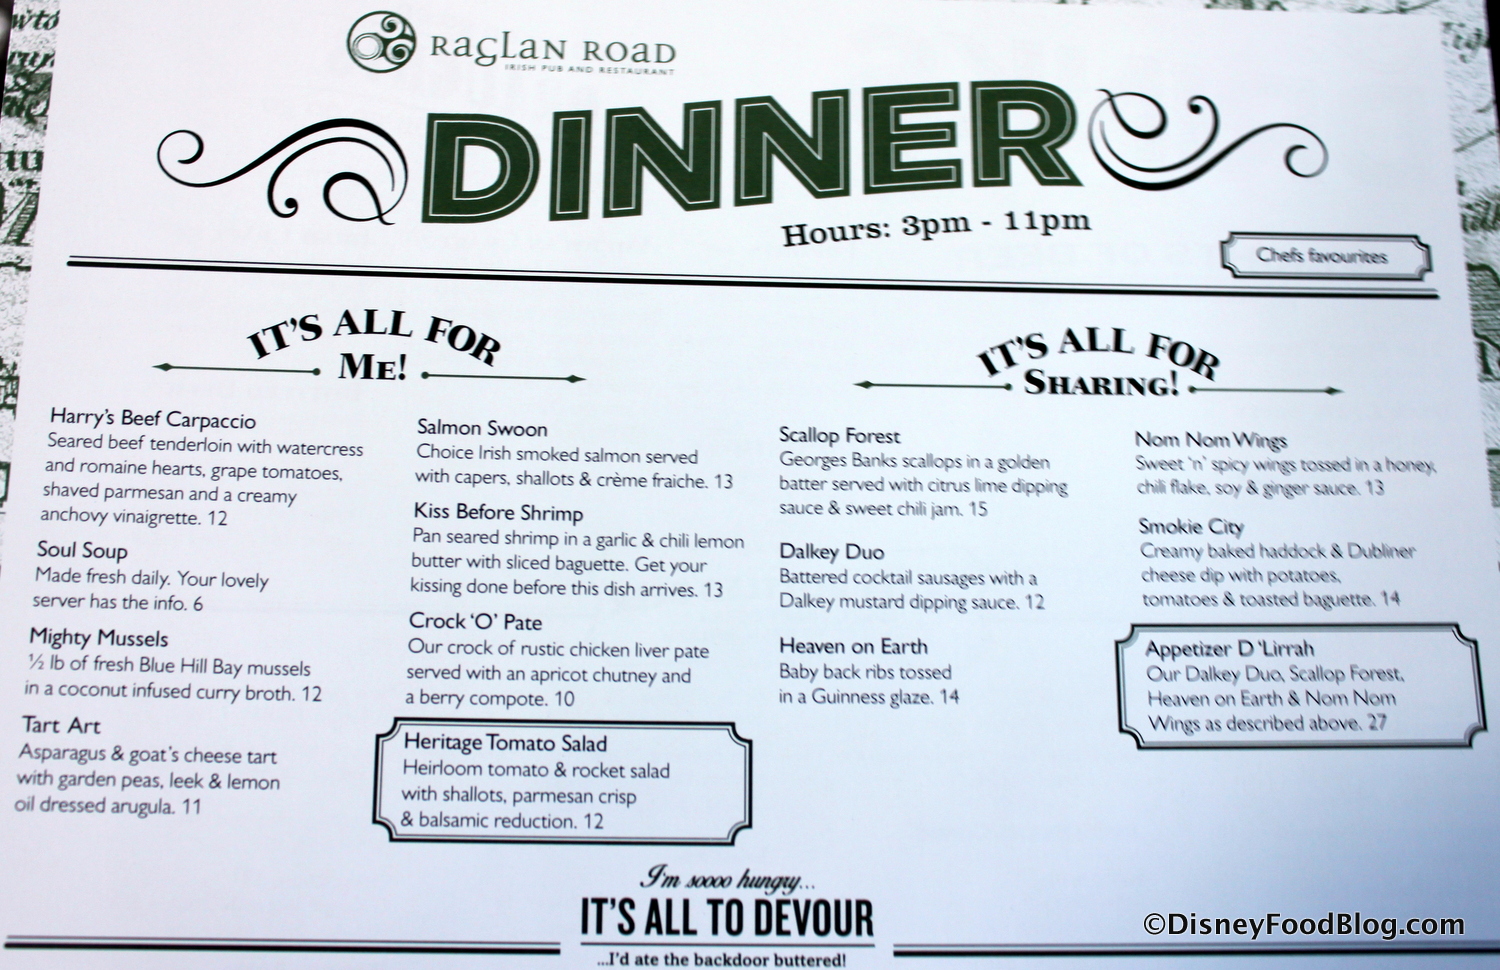 Raglan Road
Irish Pub and Restaurant
DINNER
Hours: 3pm - 11pm
Chefs favourites
IT'S ALL FOR
ME!
Harry's Beef Carpaccio
Seared beef tenderloin with watercress
and romaine hearts, grape tomatoes,
shaved parmesan and a creamy
anchovy vinaigrette. 12
Soul Soup
Made fresh daily. Your lovely
server has the info. 6
Mighty Mussels
½ lb of fresh Blue Hill Bay mussels
in a coconut infused curry broth. 12
Tart Art
Asparagus & goat's cheese tart
with garden peas, leek & lemon
oil dressed arugula. 11
Salmon Swoon
Choice Irish smoked salmon served
with capers, shallots & crème fraiche. 13
Kiss Before Shrimp
Pan seared shrimp in a garlic & chili lemon
butter with sliced baguette. Get your
kissing done before this dish arrives. 13
Crock 'O' Pate
Our crock of rustic chicken liver pate
served with an apricot chutney and
a berry compote. 10
Heritage Tomato Salad
Heirloom tomato & rocket salad
with shallots, parmesan crisp
& balsamic reduction. 12
IT'S ALL FOR
SHARING!
Scallop Forest
Georges Banks scallops in a golden
batter served with citrus lime dipping
sauce & sweet chili jam. 15
Dalkey Duo
Battered cocktail sausages with a
Dalkey mustard dipping sauce. 12
Heaven on Earth
Baby back ribs tossed
in a Guinness glaze. 14
Nom Nom Wings
Sweet 'n' spicy wings tossed in a honey,
chili flake, soy & ginger sauce. 13
Smokie City
Creamy baked haddock & Dubliner
cheese dip with potatoes,
tomatoes & toasted baguette. 14
Appetizer D 'Lirrah
Our Dalkey Duo, Scallop Forest,
Heaven on Earth & Nom Nom
Wings as described above. 27
I'm soooo hungry...
IT'S ALL TO DEVOUR
...I'd ate the backdoor buttered!
©DisneyFoodBlog.com